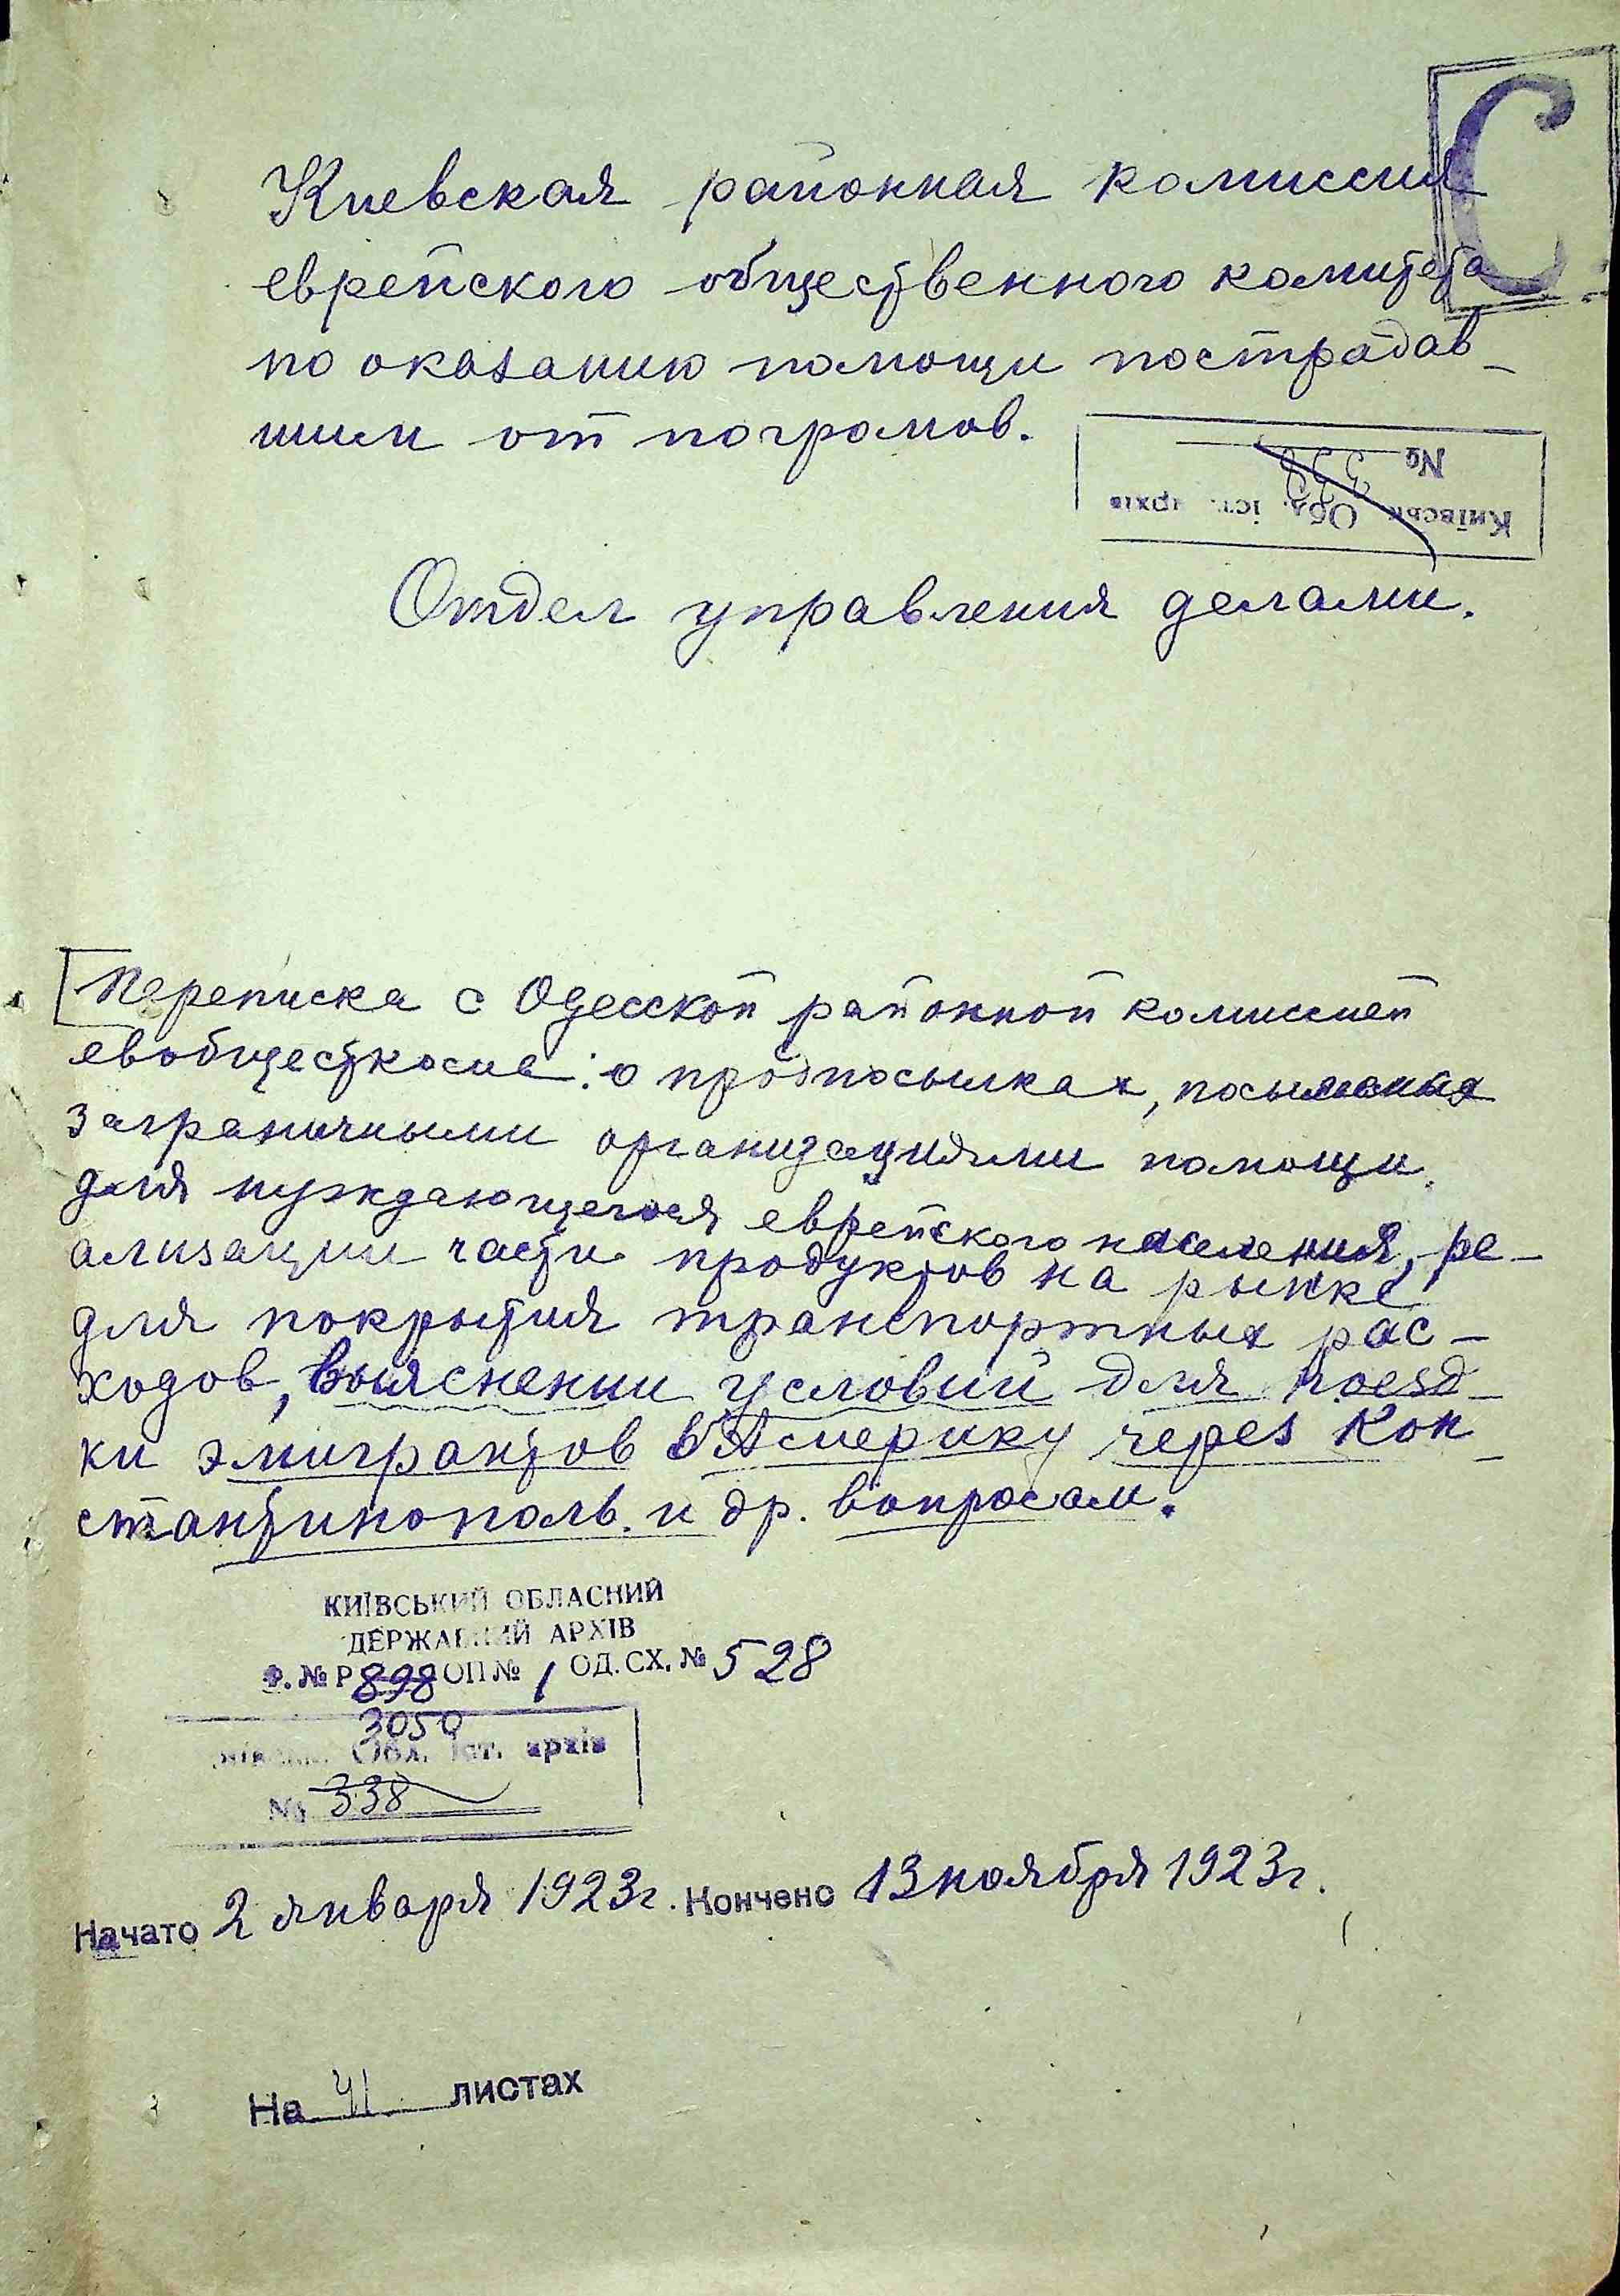 С
Киевская районная комиссия
еврейского общественного комитета
по оказанию помощи пострадав-
шим от погромов.
№ 338
Київськ. Обл. іст. архів
Отдел управления делами.
Переписка с Одесской районной комиссией
евобщесткома: о продпосылках, посыланых
заграничными организациями помощи
для нуждающегося еврейского населения, ре-
ализации части продуктов на рынке
для покрытия транспортных рас-
ходов, выяснении условий для поезд-
ки эмигрантов в Америку через Кон-
стантинополь и др. вопросам.
КИЇВСЬКИЙ ОБЛАСНИЙ
ДЕРЖАВНИЙ АРХІВ
Ф. № Р 898 ОП № 1 ОД. СХ. № 528
3050
Обл. іст. архів
№ 338
Начато 2 января 1923г. Кончено 13 ноября 1923г.
На 41 листах